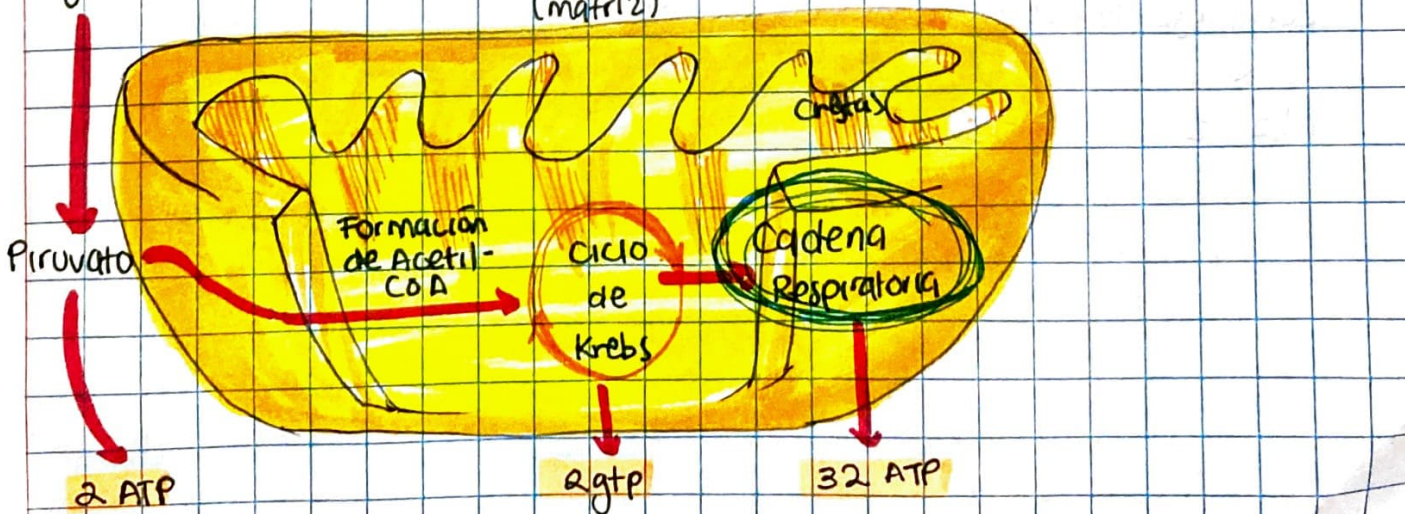 (matriz)
crestas
Piruvato
Formación
de Acetil-
CoA
Ciclo
de
Krebs
Cadena
Respiratoria
2 ATP
2gtp
32 ATP